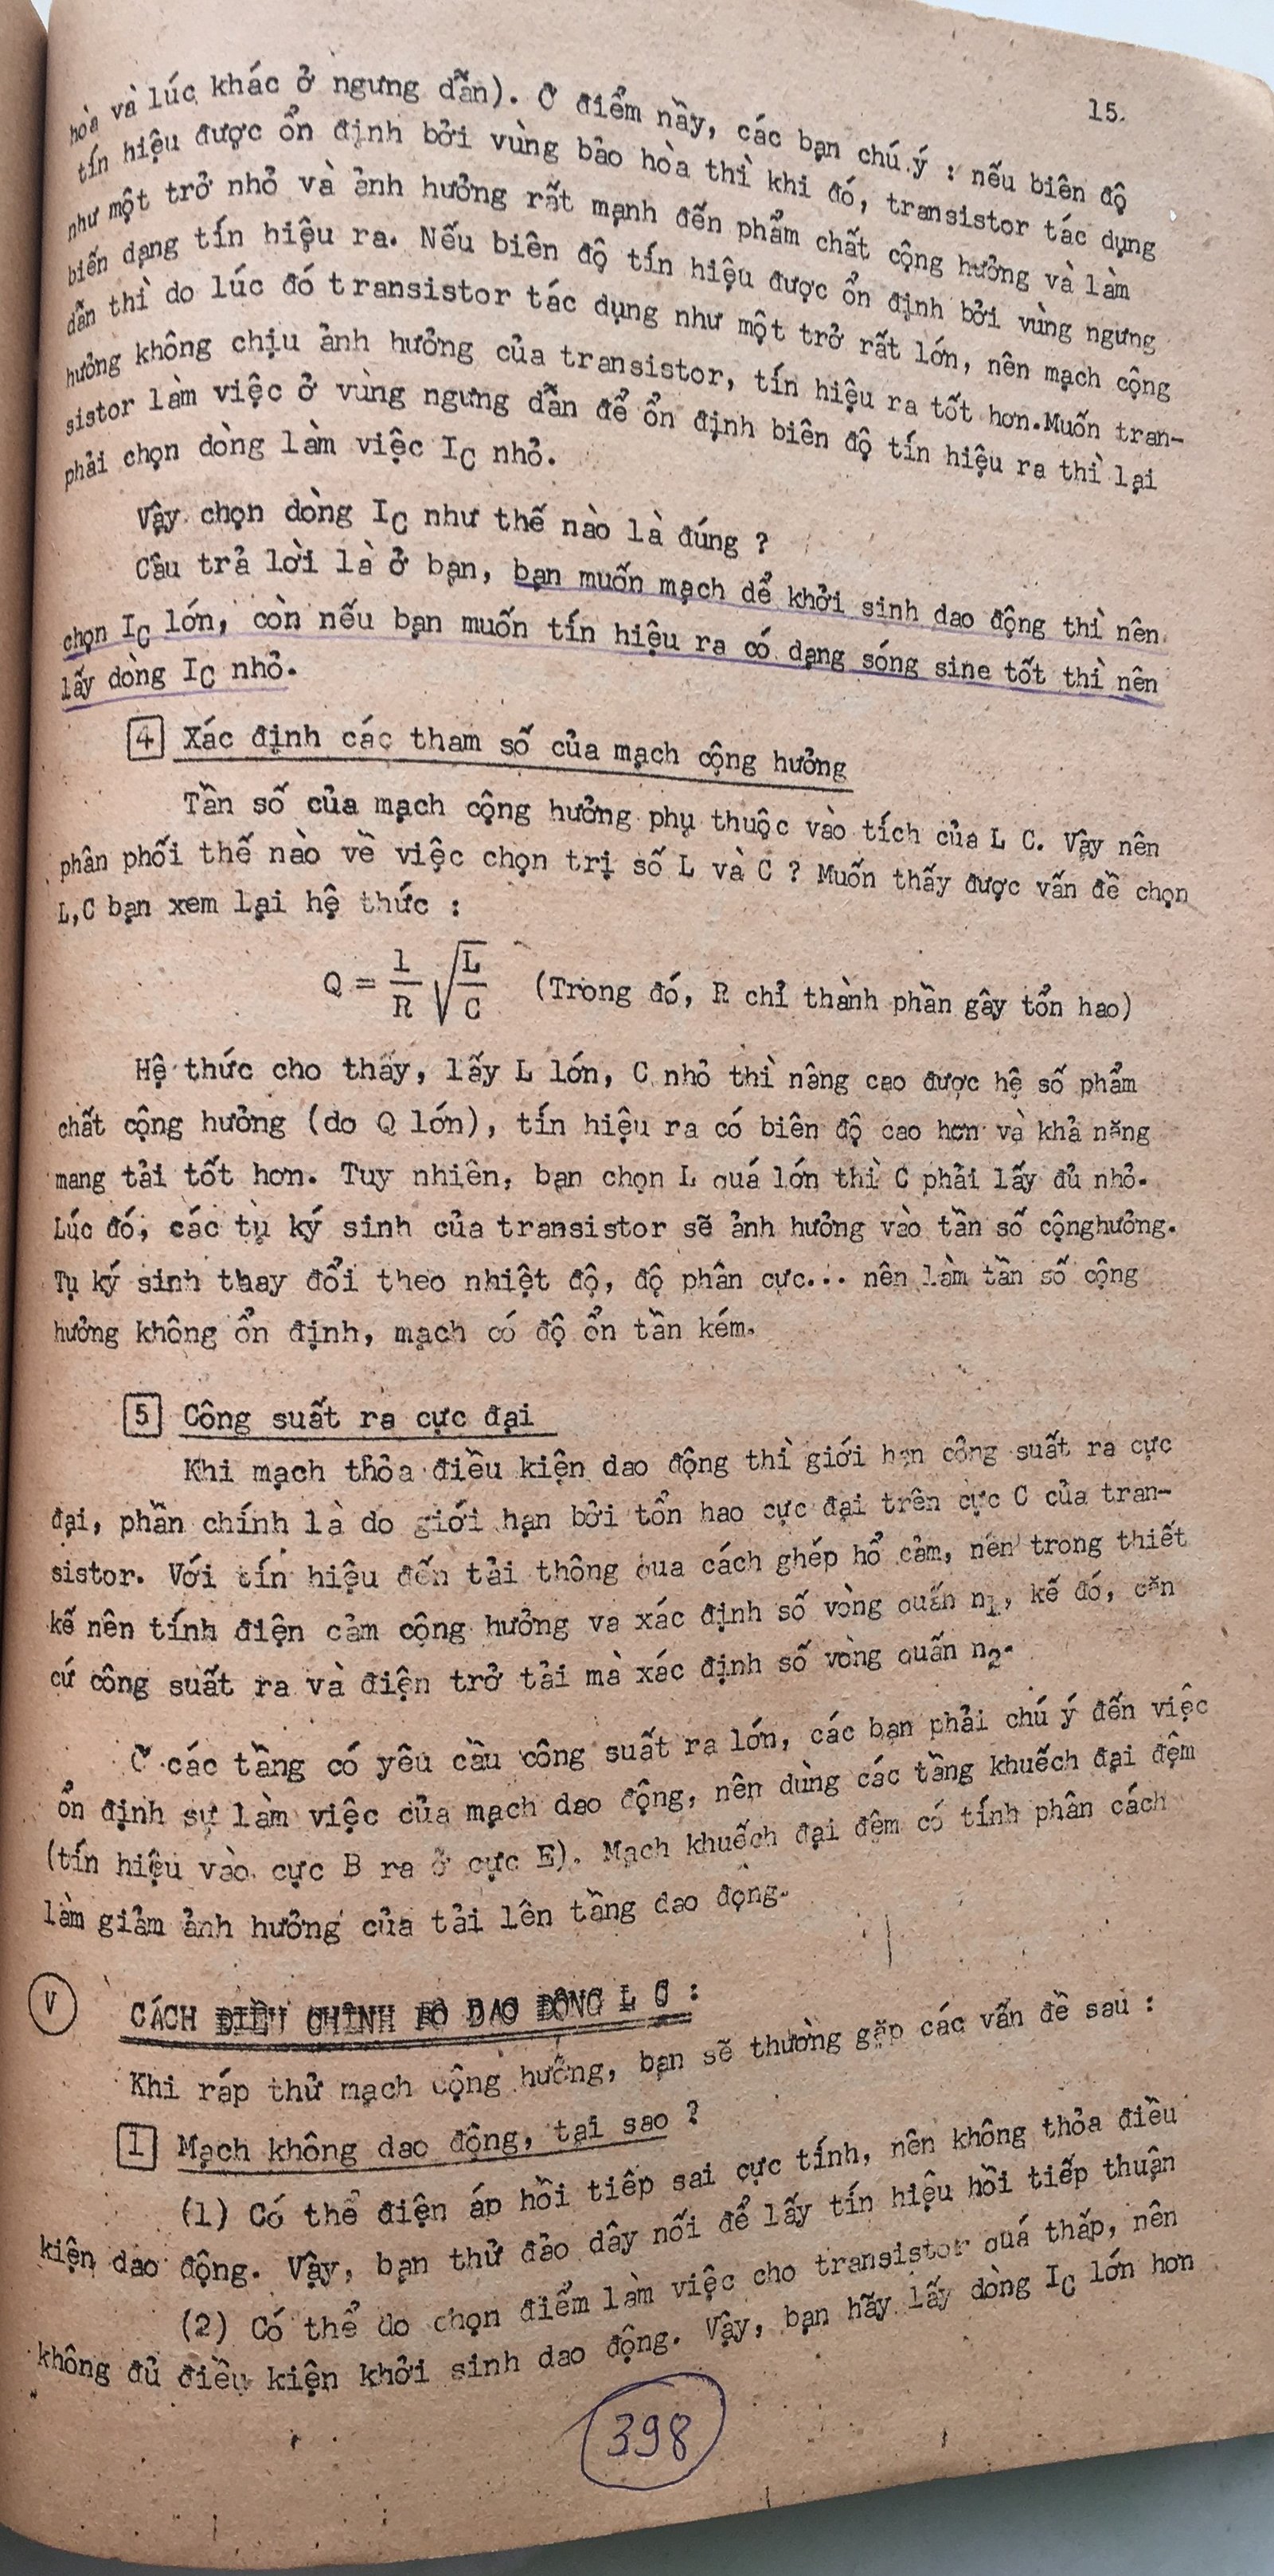 15.
hòa và lúc khác ở ngưng dẫn). Ở điểm nầy, các bạn chú ý : nếu biên độ
tín hiệu được ổn định bởi vùng bảo hòa thì khi đó, transistor tác dụng
như một trở nhỏ và ảnh hưởng rất mạnh đến phẩm chất cộng hưởng và làm
biến dạng tín hiệu ra. Nếu biên độ tín hiệu được ổn định bởi vùng ngưng
dẫn thì do lúc đó transistor tác dụng như một trở rất lớn, nên mạch cộng
hưởng không chịu ảnh hưởng của transistor, tín hiệu ra tốt hơn.Muốn tran-
sistor làm việc ở vùng ngưng dẫn để ổn định biên độ tín hiệu ra thì lại
phải chọn dòng làm việc IC nhỏ.
Vậy chọn dòng IC như thế nào là đúng ?
Câu trả lời là ở bạn, bạn muốn mạch dể khởi sinh dao động thì nên
chọn IC lớn, còn nếu bạn muốn tín hiệu ra có dạng sóng sine tốt thì nên
lấy dòng IC nhỏ.
4 Xác định các tham số của mạch cộng hưởng
Tần số của mạch cộng hưởng phụ thuộc vào tích của L C. Vậy nên
phân phối thế nào về việc chọn trị số L và C ? Muốn thấy được vấn đề chọn
L,C bạn xem lại hệ thức :
Q = 1/R √(L/C) (Trong đó, R chỉ thành phần gây tổn hao)
Hệ thức cho thấy, lấy L lớn, C nhỏ thì nâng cao được hệ số phẩm
chất cộng hưởng (do Q lớn), tín hiệu ra có biên độ cao hơn và khả năng
mang tải tốt hơn. Tuy nhiên, bạn chọn L quá lớn thì C phải lấy đủ nhỏ.
Lúc đó, các tụ ký sinh của transistor sẽ ảnh hưởng vào tần số cộnghưởng.
Tụ ký sinh thay đổi theo nhiệt độ, độ phân cực... nên làm tần số cộng
hưởng không ổn định, mạch có độ ổn tần kém.
5 Công suất ra cực đại
Khi mạch thỏa điều kiện dao động thì giới hạn công suất ra cực
đại, phần chính là do giới hạn bởi tổn hao cực đại trên cực C của tran-
sistor. Với tín hiệu đến tải thông qua cách ghép hổ cảm, nên trong thiết
kế nên tính điện cảm cộng hưởng va xác định số vòng quấn n1, kế đó, căn
cứ công suất ra và điện trở tải mà xác định số vòng quấn n2.
Ở các tầng có yêu cầu công suất ra lớn, các bạn phải chú ý đến việc
ổn định sự làm việc của mạch dao động, nên dùng các tầng khuếch đại đệm
(tín hiệu vào cực B ra ở cực E). Mạch khuếch đại đệm có tính phân cách
làm giảm ảnh hưởng của tải lên tầng dao động.
V CÁCH ĐIỀU CHỈNH BỘ DAO ĐỘNG L C :
Khi ráp thử mạch cộng hưởng, bạn sẽ thường gặp các vấn đề sau :
1 Mạch không dao động, tại sao ?
(1) Có thể điện áp hồi tiếp sai cực tính, nên không thỏa điều
kiện dao động. Vậy, bạn thử đảo dây nối để lấy tín hiệu hồi tiếp thuận
(2) Có thể do chọn điểm làm việc cho transistor quá thấp, nên
không đủ điều kiện khởi sinh dao động. Vậy, bạn hãy lấy dòng IC lớn hơn
398